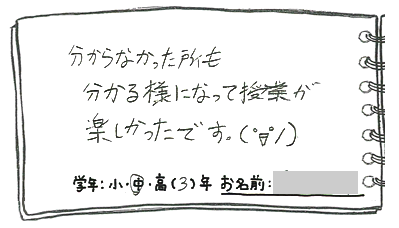 分からなかった所も
分かる様になって授業が
楽しかったです。(°∇°/)
学年:小・中・高(3)年 お名前: